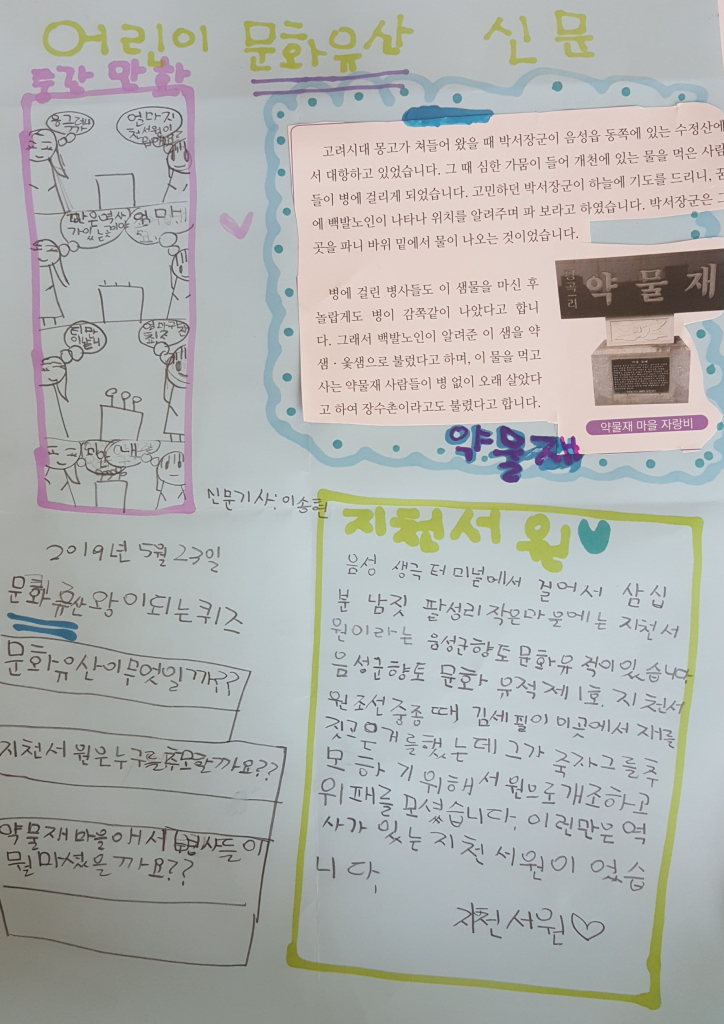 어린이 문화유산 신문
중간 만화
많은 역사
가 있는 곳이야
고려시대 몽고가 쳐들어 왔을 때 박서장군이 음성읍 동쪽에 있는 수정산에
서 대항하고 있었습니다. 그 때 심한 가뭄이 들어 개천에 있는 물을 먹은 사람
들이 병에 걸리게 되었습니다. 고민하던 박서장군이 하늘에 기도를 드리니, 꿈
에 백발노인이 나타나 위치를 알려주며 파 보라고 하였습니다. 박서장군은 그
곳을 파니 바위 밑에서 물이 나오는 것이었습니다.
병에 걸린 병사들도 이 샘물을 마신 후
놀랍게도 병이 감쪽같이 나았다고 합니
다. 그래서 백발노인이 알려준 이 샘을 약
샘·옻샘으로 불렀다고 하며, 이 물을 먹고
사는 약물재 사람들이 병 없이 오래 살았다
고 하여 장수촌이라고도 불렸다고 합니다.
약물재
약물재 마을 자랑비
약물재
신문기사: 이송현
2019년 5월 23일
문화유산왕이되는퀴즈
문화유산이무엇일까??
지천서원은누구를추모한까요??
약물재마을애서병사들이
뭘마셨을까요??
지천서원
음성 생극터미널에서 걸어서 삼십
분 남짓 팔성리작은마을에는 지천서
원이라는 음성군향토문화유적이있습니다
음성군향토 문화 유적제1호. 지천서
원조선중종때 김세필이이곳에서재를
짓고은거를했는데그가 죽자그를추
모하기위해서원으로개조하고
위패를모셨습니다. 이런만은역
사가 있는지천서원이 있습
니다.
지천서원